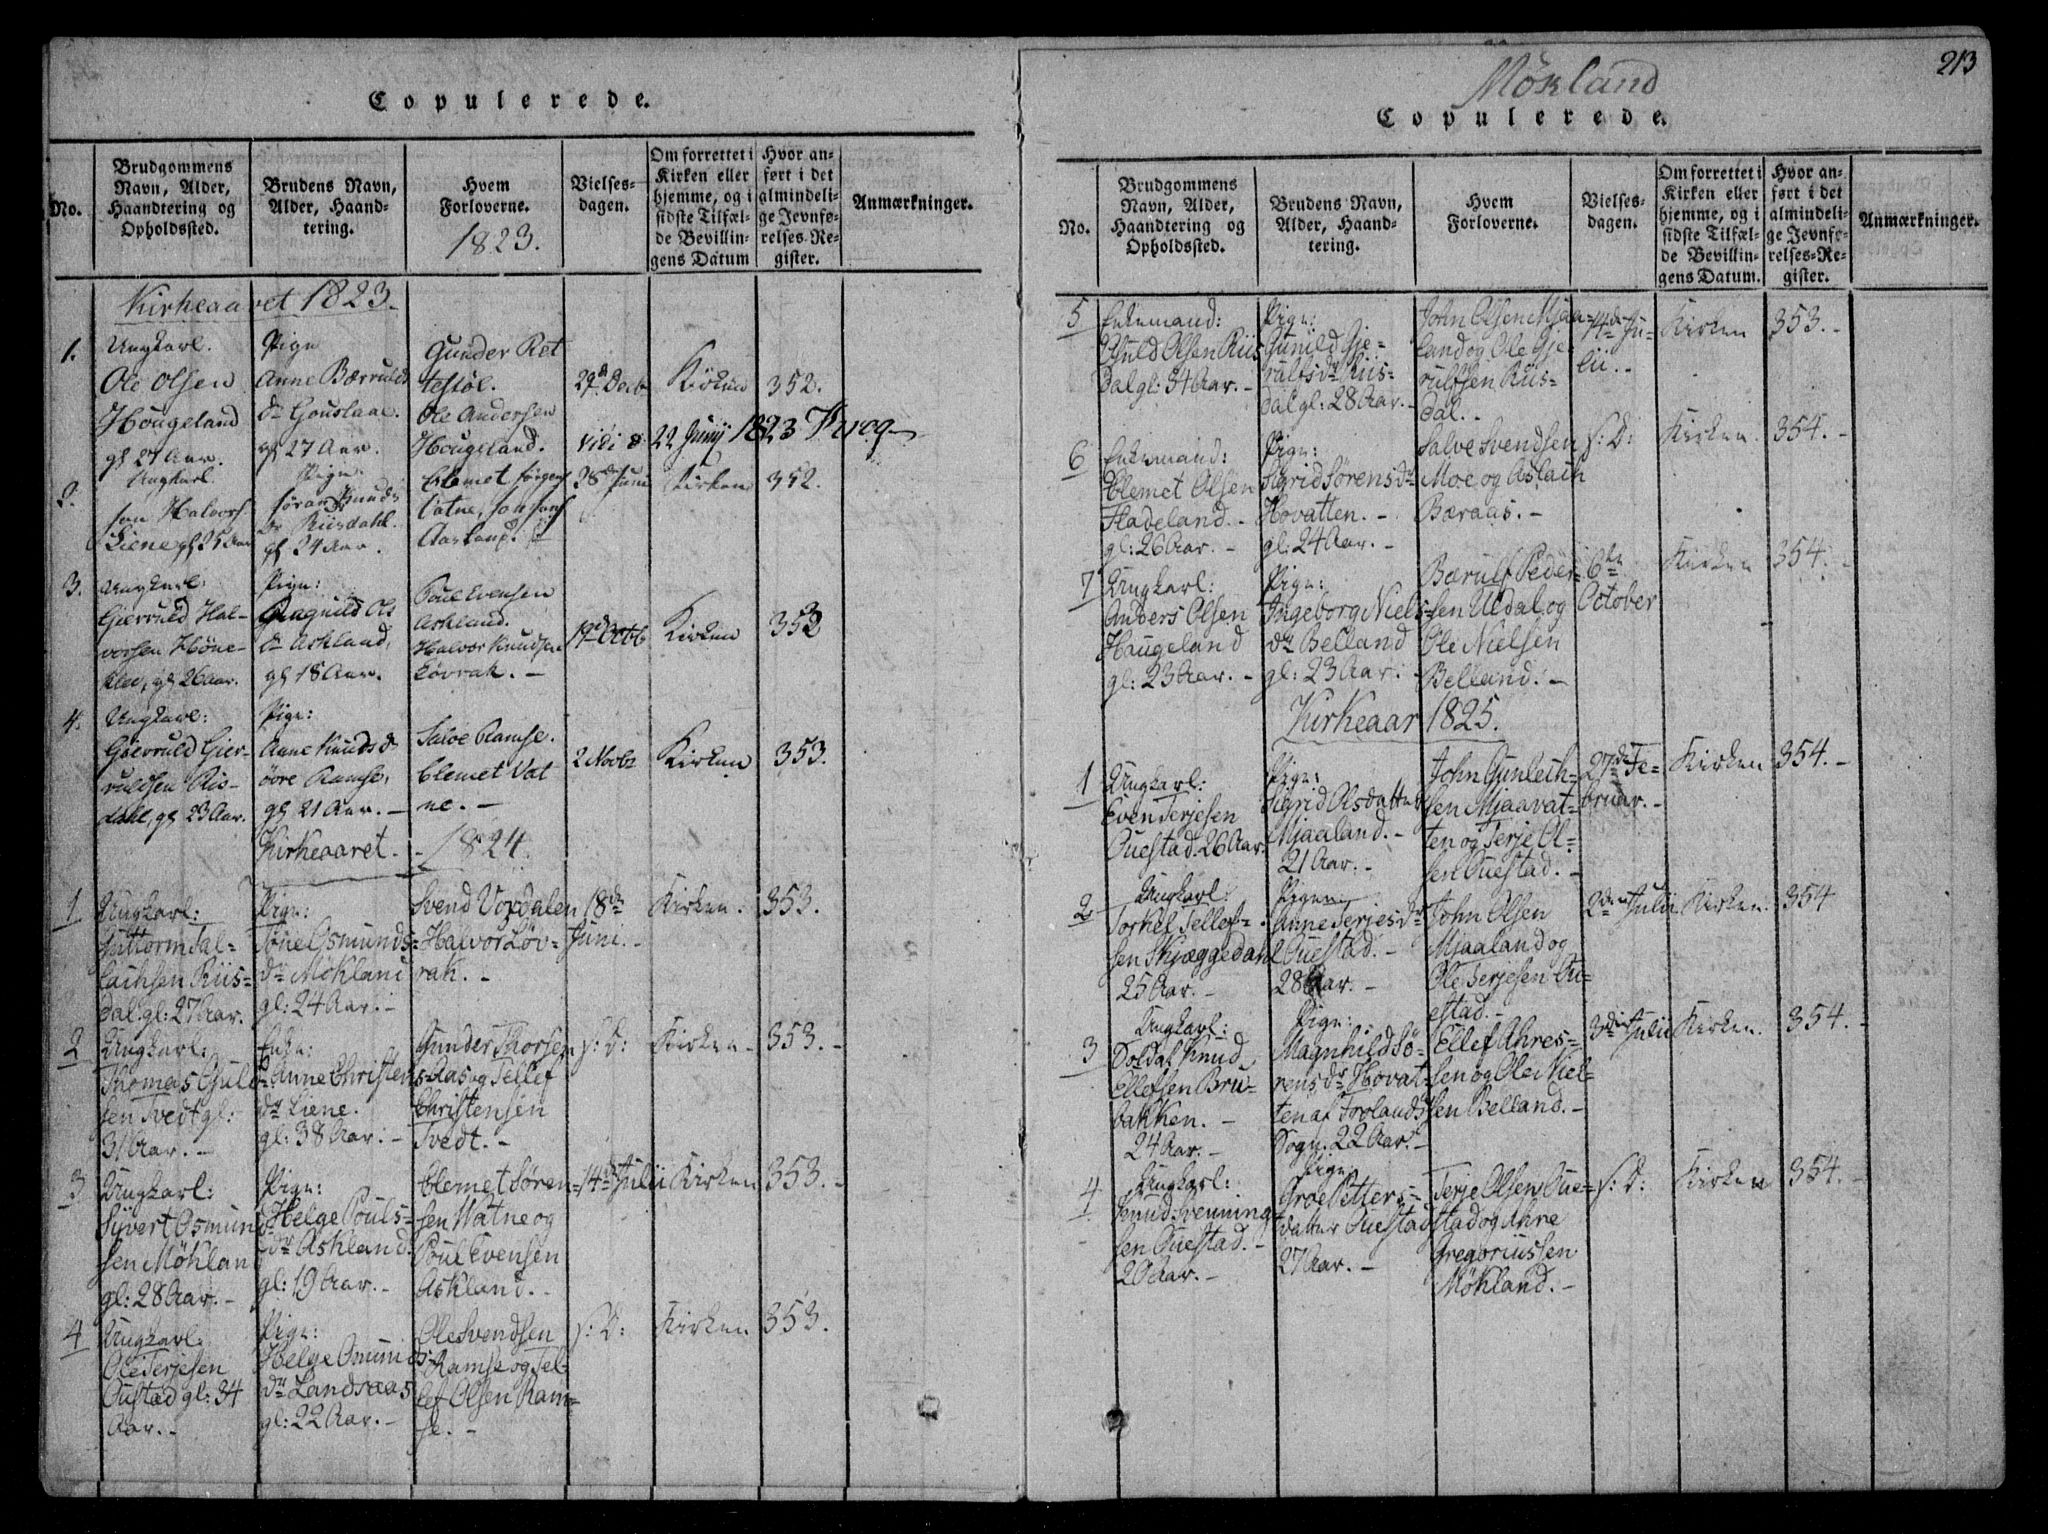 Copulerede.
No.
Brudgommens
Navn, Alder,
Haandtering og
Opholdssted.
Brudens Navn,
Alder, Haand-
tering.
Hvem
Forloverne.
1823.
Vielses-
dagen.
Om forrettet i
Kirken eller
hjemme, og i
sidste Tilfæl-
de Bevillin-
gens Datum
Hvor an-
ført i det
almindeli-
ge Jevnfø-
relses-Re-
gister.
Anmærkninger.
Kirkeaaret 1823.
1.
Ungkarl.
Ole Olsen
Hougeland
gl 27 Aar.
Pige
Anne Bærrulds
dr Gouslaae.
gl 27 Aar.
Gunder Ret
testøl.
Ole Andersen
Hougeland.
29d Decb
Kirken
352.
Vidi d: 22 Junij 1823 Krog
2.
Ungkarl.
Halvors
Liene gl 25 Aar
Pige:
Knuds
dr Riisdahl.
gl 24 Aar.
Clemet
Vatne,
28de Juni
Kirken
352.
3.
Ungkarl:
Gierruld Hal-
vorsen Høne-
klev, gl 26 Aar.
Pige:
Ragnild Ols
dr Askland,
gl 18 Aar.
Poul Evensen
Askland.
Halvor Knudsen
Løvrak. -
19d Octb
Kirken
352
4.
Ungkarl:
Gierruld Gier-
ruldsen Ris-
dahl, gl 23 Aar.
Pige:
Anne Knuds d
øvre Ramse,
gl 21 Aar. -
Salve Ramse.
Clemet Vat
ne. -
2 Novbr
Kirken
353.
Kirkeaaret - 1824.
1
Ungkarl:
Guttorm Sal-
lachsen Riis-
dal. gl: 27 Aar.
Pige:
Tone Osmunds-
dr Mökland
gl: 24 Aar. -
Svend Vordalen
Halvor Löv-
rak. -
18de
Juni. -
Kirken.
353.
2
Ungkarl:
Thomas Guld-
sen Tvedt gl:
31 Aar. -
Enke:
Anne Christens
dr Liene.
gl: 38 Aar. -
Gunder Thorsen
Aas og Tellef
Christensen
Tvedt. -
s: D:
Kirken -
353. -
3
Ungkarl:
Sivert Osmund
sen Mökland
gl: 28 Aar. -
Pige:
Helge Pouls-
dr Askland.
gl: 19 Aar. -
Clemet Sören-
sen Watne og
Poul Evensen
Askland. -
14de Julii
Kirken
353. -
4
Ungkarl:
Ole Terjesen
Oustad gl: 34
Aar. -
Pige:
Helge Omunds
dr Landsaas
gl: 22 Aar. -
Ole Svendsen
Ramse og Tel-
lef Olsen Ram-
se. -
s: D:
Kirken
353.
213
Mökland
Copulerede.
No.
Brudgommens
Navn, Alder,
Haandtering og
Opholdssted.
Brudens Navn,
Alder, Haand-
tering.
Hvem
Forloverne.
Vielses-
dagen.
Om forrettet i
Kirken eller
hjemme, og i
sidste Tilfæl-
de Bevillin-
gens Datum.
Hvor an-
ført i det
almindeli-
ge Jevnfø-
relses-Re-
gister.
Anmærkninger.
5
Enkemand:
Olsen Riis
dal gl: 34 Aar. -
Pige:
Gunild Gje-
rulfs dr Riis-
dal gl: 28 Aar. -
John Olsen Mjaa-
land og Ole Gje-
rulfsen Riis-
dal. -
14de Ju-
lii. -
Kirken
353. -
6
Enkemand:
Clemet Olsen
Fladeland. -
gl: 26 Aar. -
Pige:
Sigrid Sörens dr
Hovatten. -
gl: 24 Aar. -
Salve Svendsen
Moe og Aslach
Bæraas. -
s: D:
Kirken.
354. -
7
Ungkarl:
Anders Olsen
Haugeland
gl: 23 Aar. -
Pige:
Ingeborg Niels-
dr Belland
gl: 23 Aar.
Bærulf Peder-
sen Uldal og
Ole Nielsen
Belland. -
6te
October
Kirken
354. -
Kirkeaar 1825.
1
Ungkarl:
Even Terjesen
Ouestad. 26 Aar.
Pige:
Sigrid Olsdatter
Mjaaland. -
21 Aar. -
John Gunleth-
sen Mjaavat-
ten og Terje Ol-
sen Ouestad. -
27de Fe-
bruar. -
Kirken
354. -
2
Ungkarl:
Torkel Tellef-
sen Skjæggedahl
25 Aar. -
Pige
Anne Terjes dr
Ouestad. -
28 Aar. -
John Olsen
Mjaaland og
Ole Terjesen Ou-
estad. -
2den Julii
Kirken.
354
3
Ungkarl:
Soldat Knud
Ellefsen Bru-
bakken. -
24 Aar. -
Pige:
Magnhild Sö-
rens dr Hovat-
ten af Tovlands
Sogn. 22 Aar. -
Ellef Ahres-
sen og Ole Niel-
sen Belland. -
3die Julii
Kirken.
354. -
4
Ungkarl:
Knud Svenning-
sen Ouestad. -
20 Aar. -
Pige
Groe Petters-
datter Ouestad
27 Aar. -
Terje Olsen Oue-
stad og Ahre
Gregoriussen
Mökland. -
s: D:
Kirken
354. -